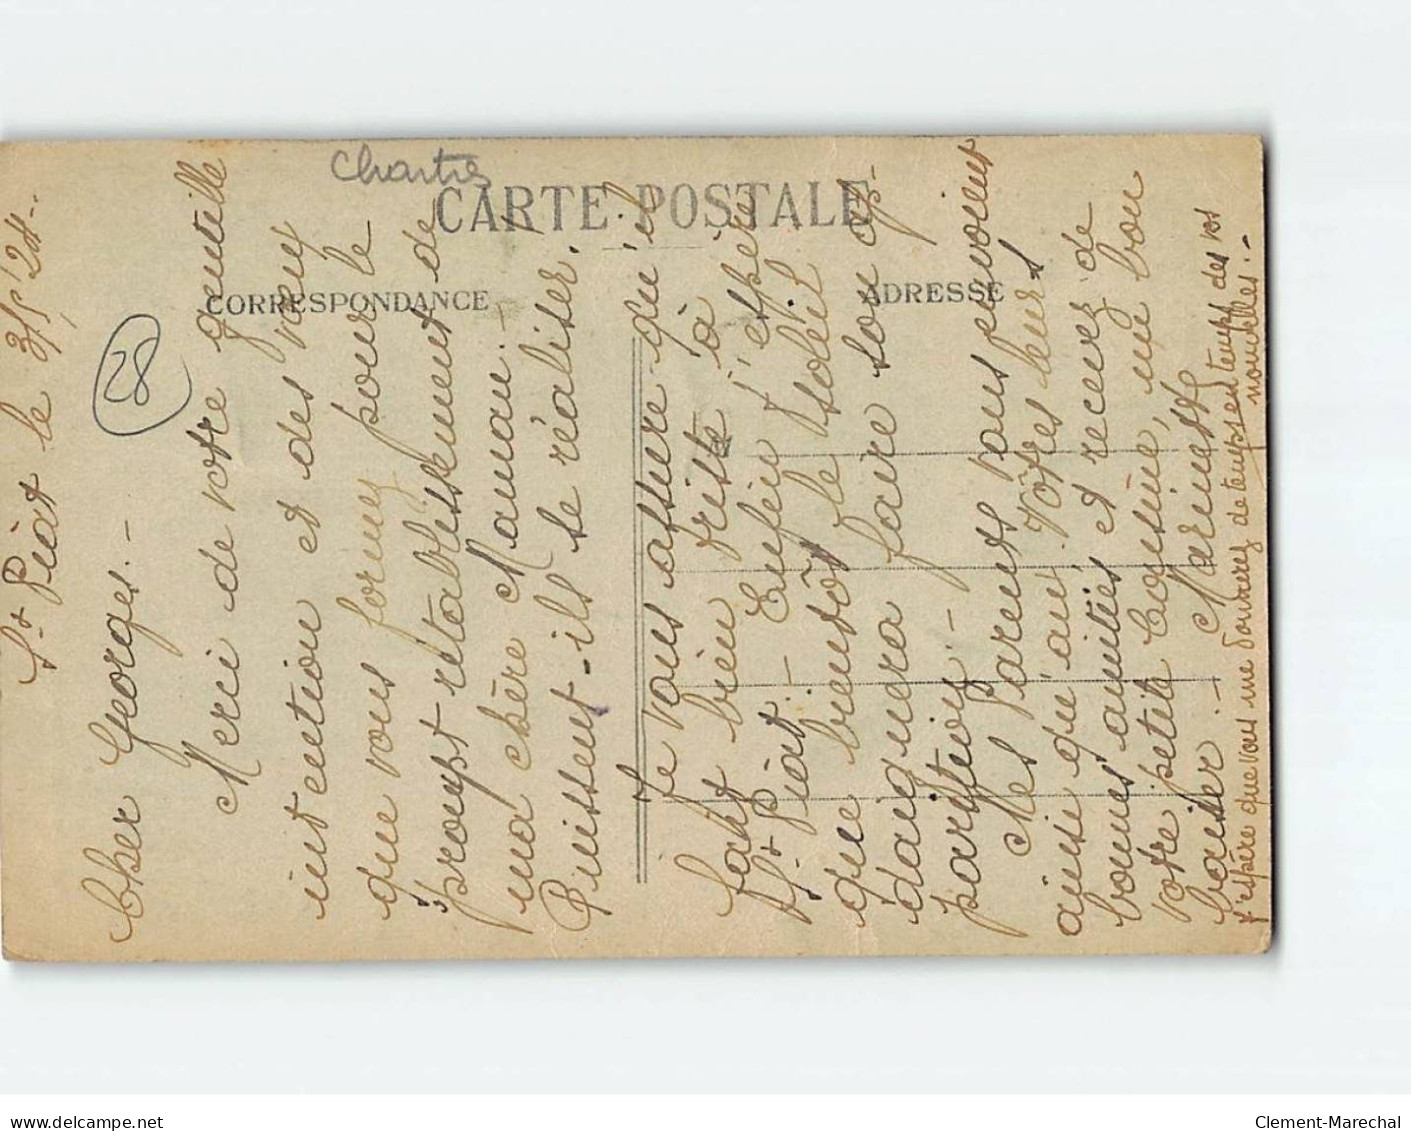 Chartres
CARTE POSTALE
CORRESPONDANCE
ADRESSE
28
St Piat le 3/5/24.
Cher Georges. —
Merci de votre gentille
intention et des vœux
que vous formez pour le
prompt rétablissement de
ma chère Maman. —
Puissent-ils se réaliser.
Je vous assure qu'il
fait bien triste à
St Piat. — Enfin j'espère
que bientôt le soleil
daignera faire son ap-
parition. —
Mes Parents vous renvoient
ainsi qu'aux Vôtres leurs
bonnes amitiés et recevez de
votre petite Cousine, un bon
baiser. — Marinette
J'espère que vous me donnerez de temps en temps des vos
nouvelles. —
delcampe.net
Clement-Marechal